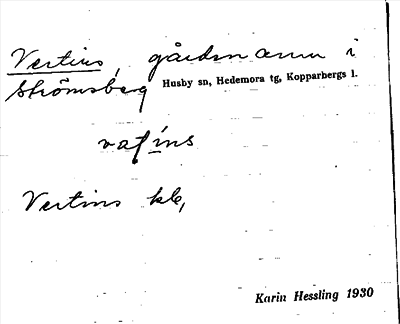 Vertins, gårdnamn i
Strömsberg Husby sn, Hedemora tg, Kopparbergs l.
Vertins kb,
Karin Hessling 1930